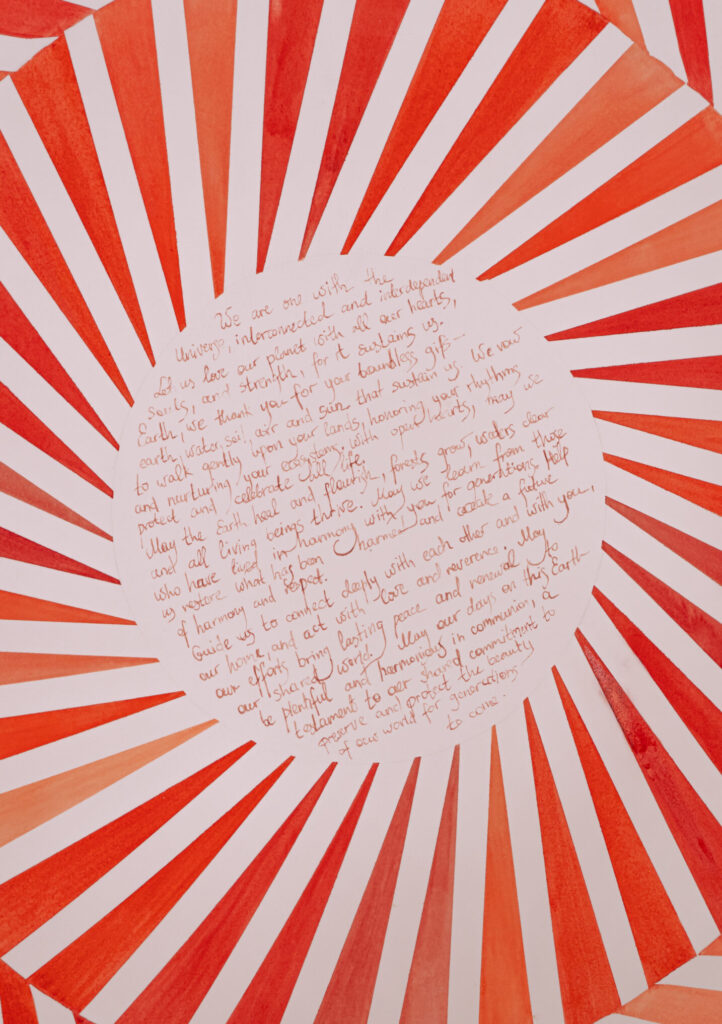 We are one with the
Universe, interconnected and interdependent
Let us love our planet with all our hearts,
souls, and strength, for it sustains us.
Earth, we thank you for your boundless gifts—
earth, water, soil, air and sun that sustain us. We vow
to walk gently upon your lands, honoring your rhythms
and nurturing your ecosystems. With open hearts, may we
protect and celebrate all life.
May the Earth heal and flourish, forests grow, waters clear
and all living beings thrive. May we learn from those
who have lived in harmony with you for generations. Help
us restore what has been harmed and create a future
of harmony and respect.
Guide us to connect deeply with each other and with you,
our home, and act with love and reverence. May
our efforts bring lasting peace and renewal to
our shared world. May our days on this Earth
be plentiful and harmonious in communion, a
testament to our shared commitment to
preserve and protect the beauty
of our world for generations
to come.